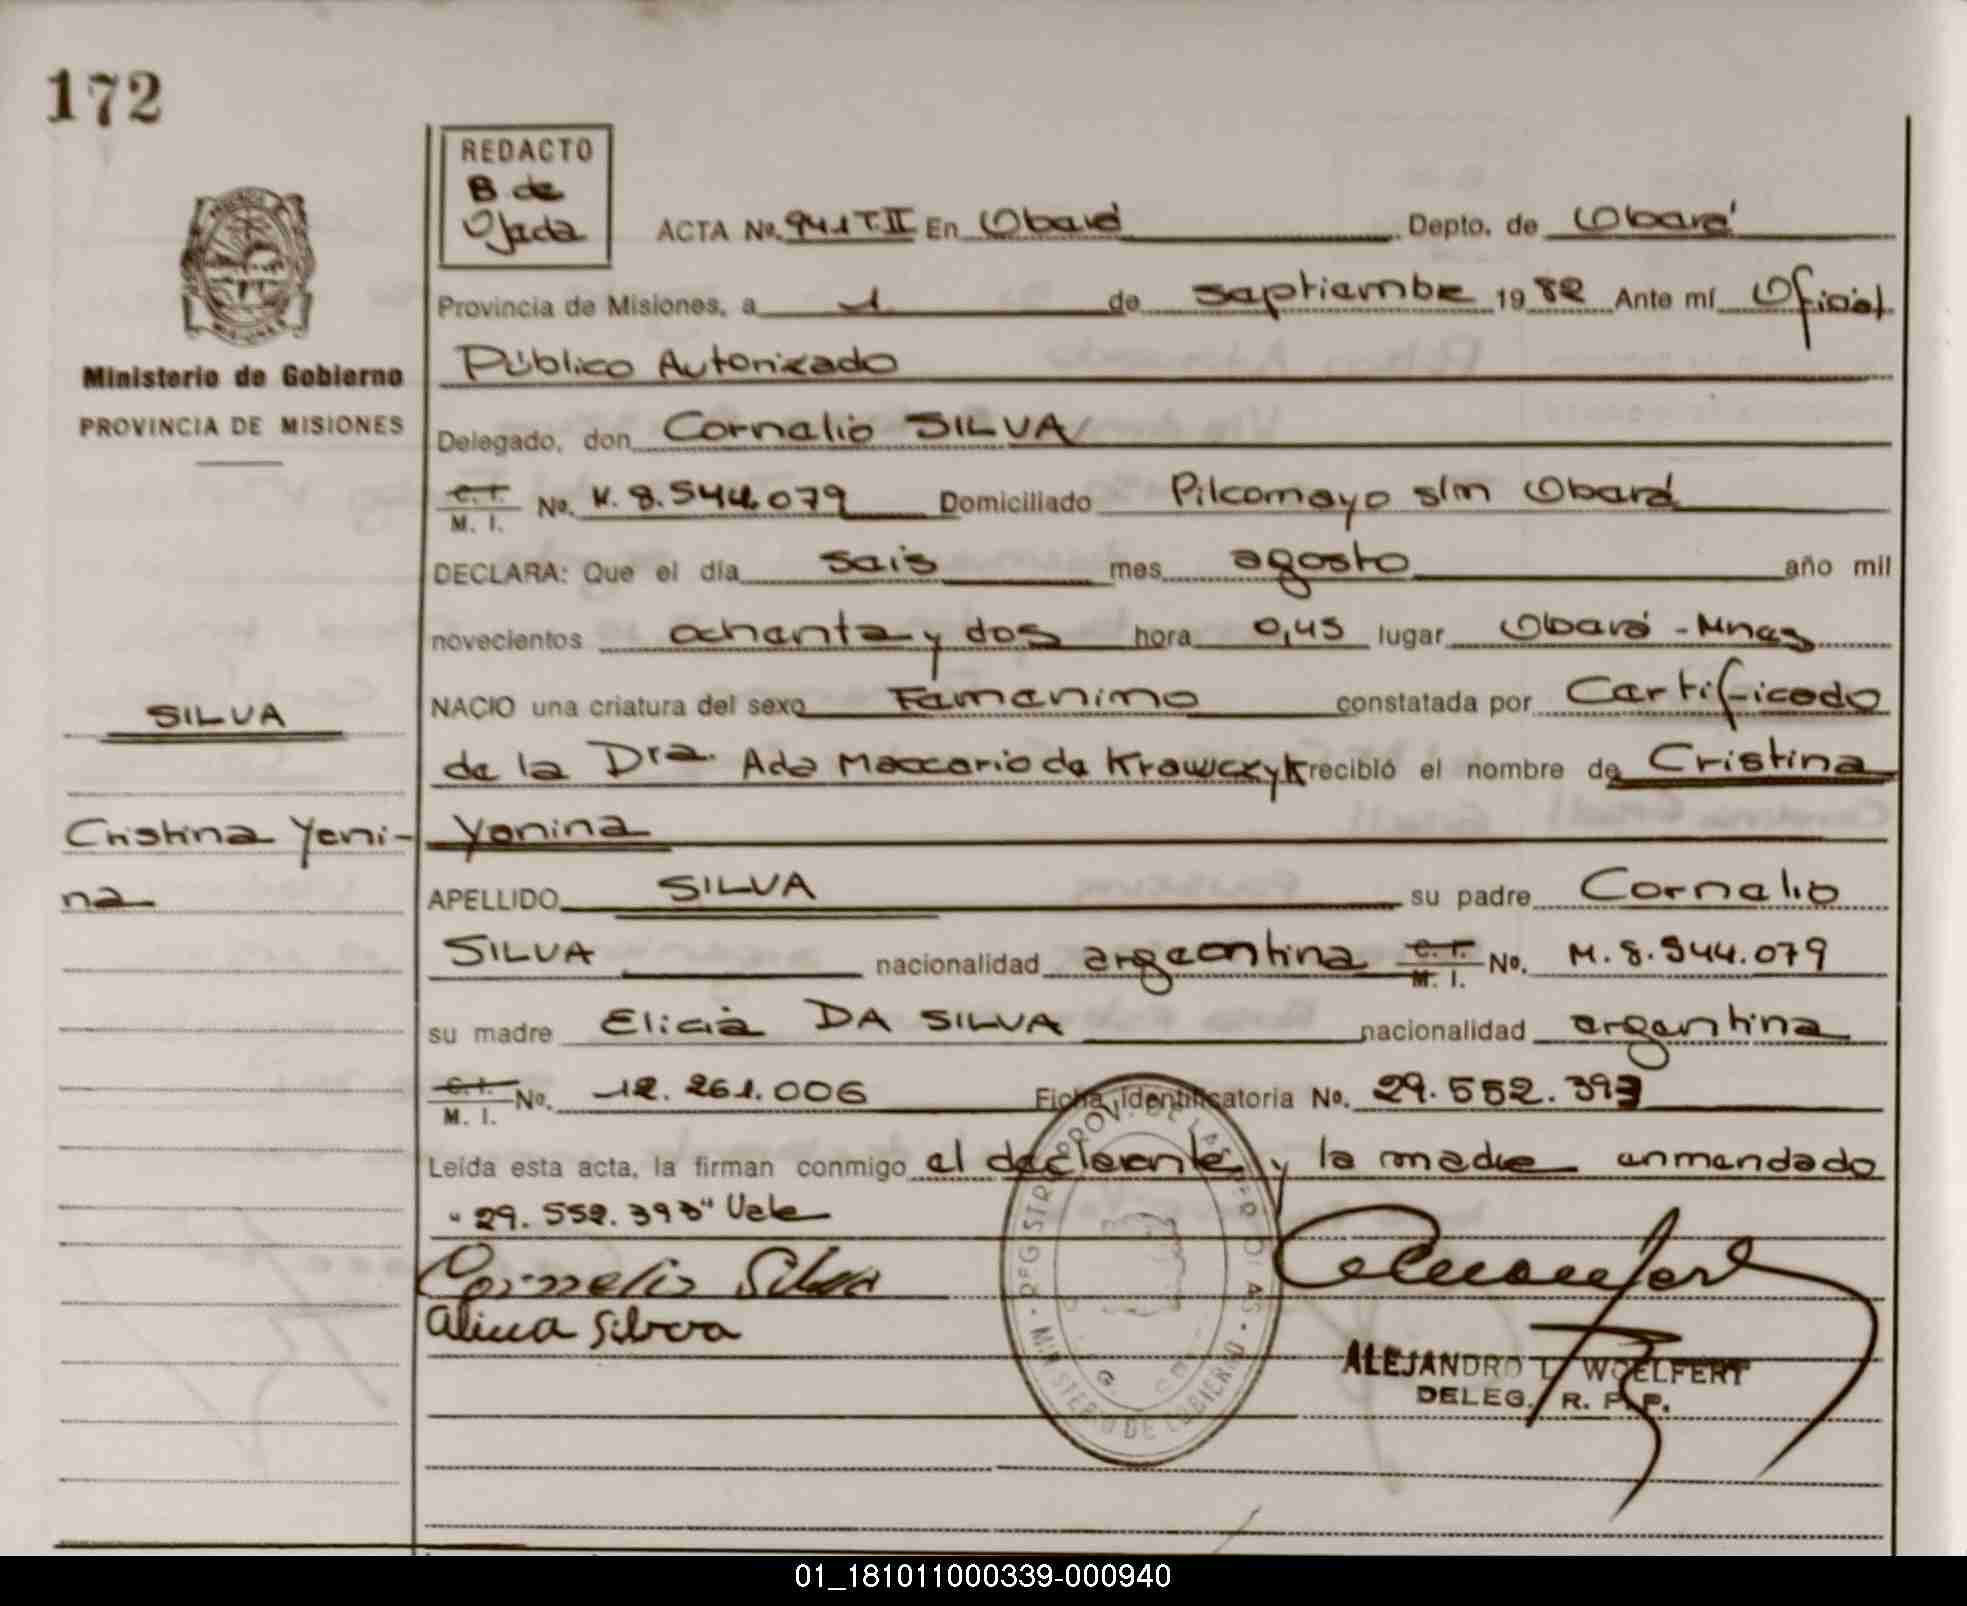 172
REDACTO
B de
Ojeda
ACTA No. 941 T. II En Oberá Depto. de Oberá
Provincia de Misiones, a 1 de septiembre 1982 Ante mí Oficial
Público Autorizado
Ministerio de Gobierno
PROVINCIA DE MISIONES
Delegado, don Cornelio SILVA
C. I. M. I. No. M. 8.544.079 Domiciliado Pilcomayo s/n Oberá
DECLARA: Que el día seis mes agosto año mil
novecientos ochenta y dos hora 0,45 lugar Oberá - Mnes
NACIO una criatura del sexo Femenino constatada por Certificado
de la Dra. Ada Maccario de Krawczyk recibió el nombre de Cristina
Yenina
SILVA
Cristina Yeni-
na
APELLIDO SILVA su padre Cornelio
SILVA nacionalidad argentina C. I. M. I. No. M. 8.544.079
su madre Elicia DA SILVA nacionalidad argentina
C. I. M. I. No. 12.261.006 Ficha identificatoria No. 29.552.393
Leída esta acta, la firman conmigo el declarante y la madre enmendado
"29.552.393" Vale
Cornelio Silva
REGISTRO PROV. DE LAS PERSONAS - MINISTERIO DE GOBIERNO
ALEJANDRO L. WOELFERT
DELEG. R. P. P.
01_181011000339-000940